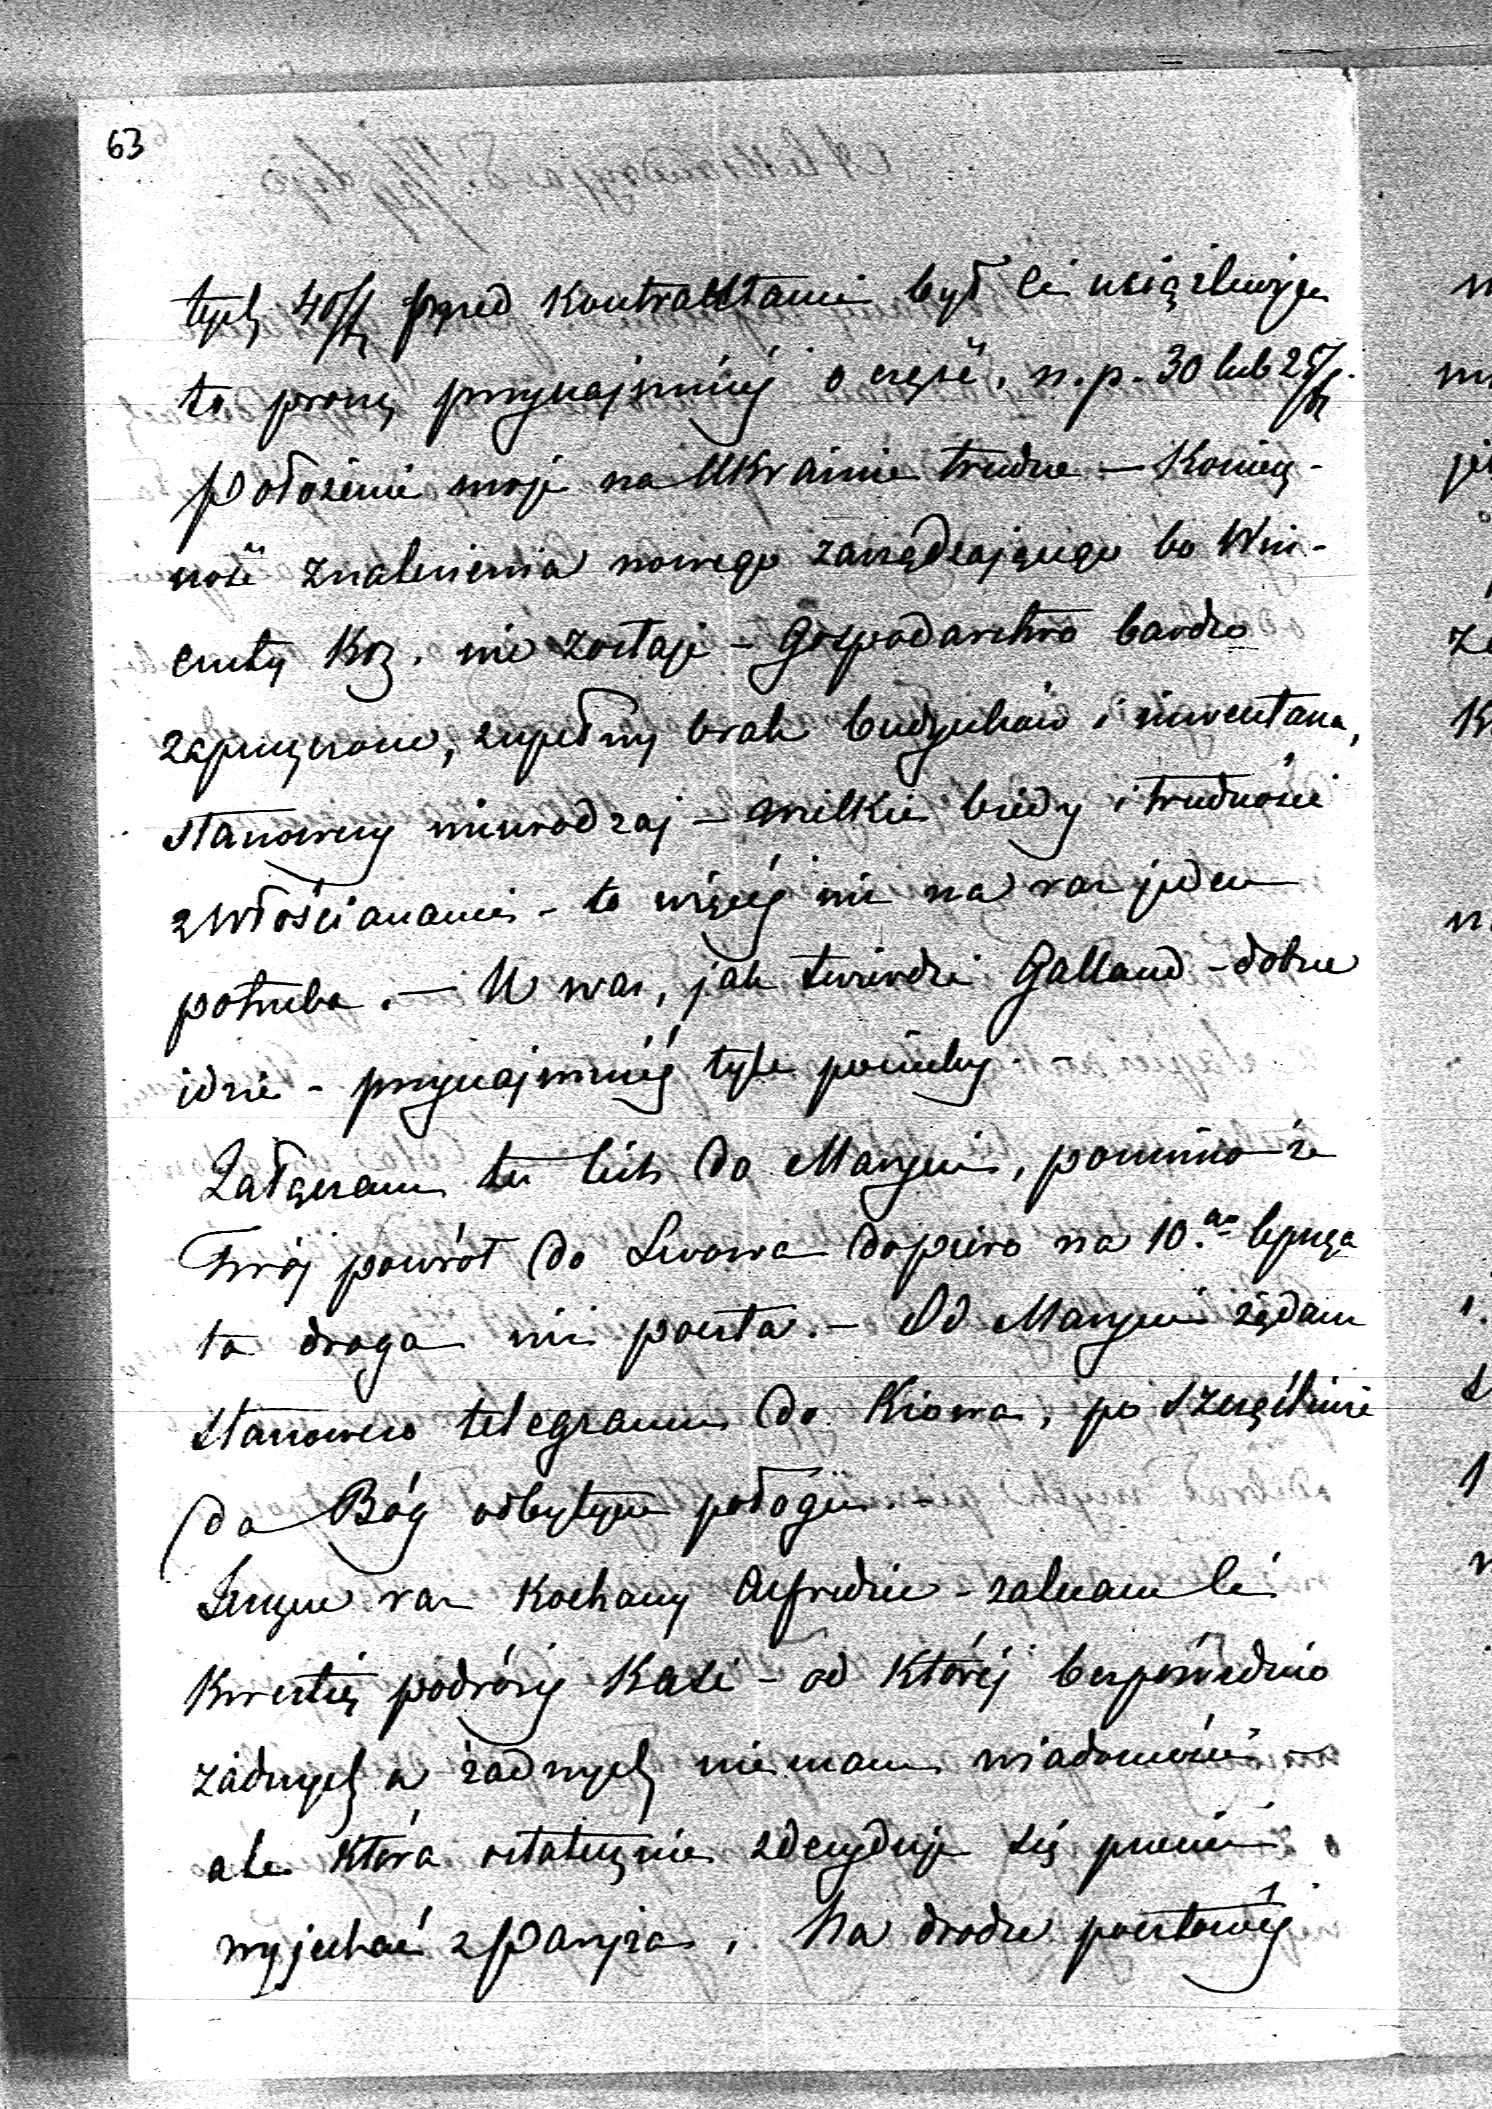 63
tych 40/m przed Kontraktami był Ci uciążliwym
to proszę przynajmniéj o część, n.p. 30 lub 25/m.
Położenie moje na Ukrainie trudne – Koniecz-
ność znalezienia nowego zarządzającego bo Win-
centy Koz. nie zostaje – Gospodarstwo bardzo
zapuszczone, zupełny brak budynków i inwentarza,
stanowczy nieurodzaj – wielkie biédy i trudności
z Włościanami – to więcéj niż na raz jeden
potrzeba. – U was, jak twierdzi Galland – dobrze
idzie – przynajmniéj tyle pociechy –
Załączam tu list do Maryni, pomimo że
Twój powrót do Lwowa dopiero na 10.go
ta droga niż poczta. – Od Maryni żądam
stanowczo telegramu do Kiowa, po szczęśliwie
da Bóg odbytym połogu. –
Jeszcze raz Kochany Alfredzie – zalecam Ci
Kwestię podróży Kasi – od któréj bezpośrednio
żadnych a żadnych niemam wiadomości –
ale która ostatecznie zdecyduje się przecież
wyjechać z Paryża. Na drodze pocztowéj